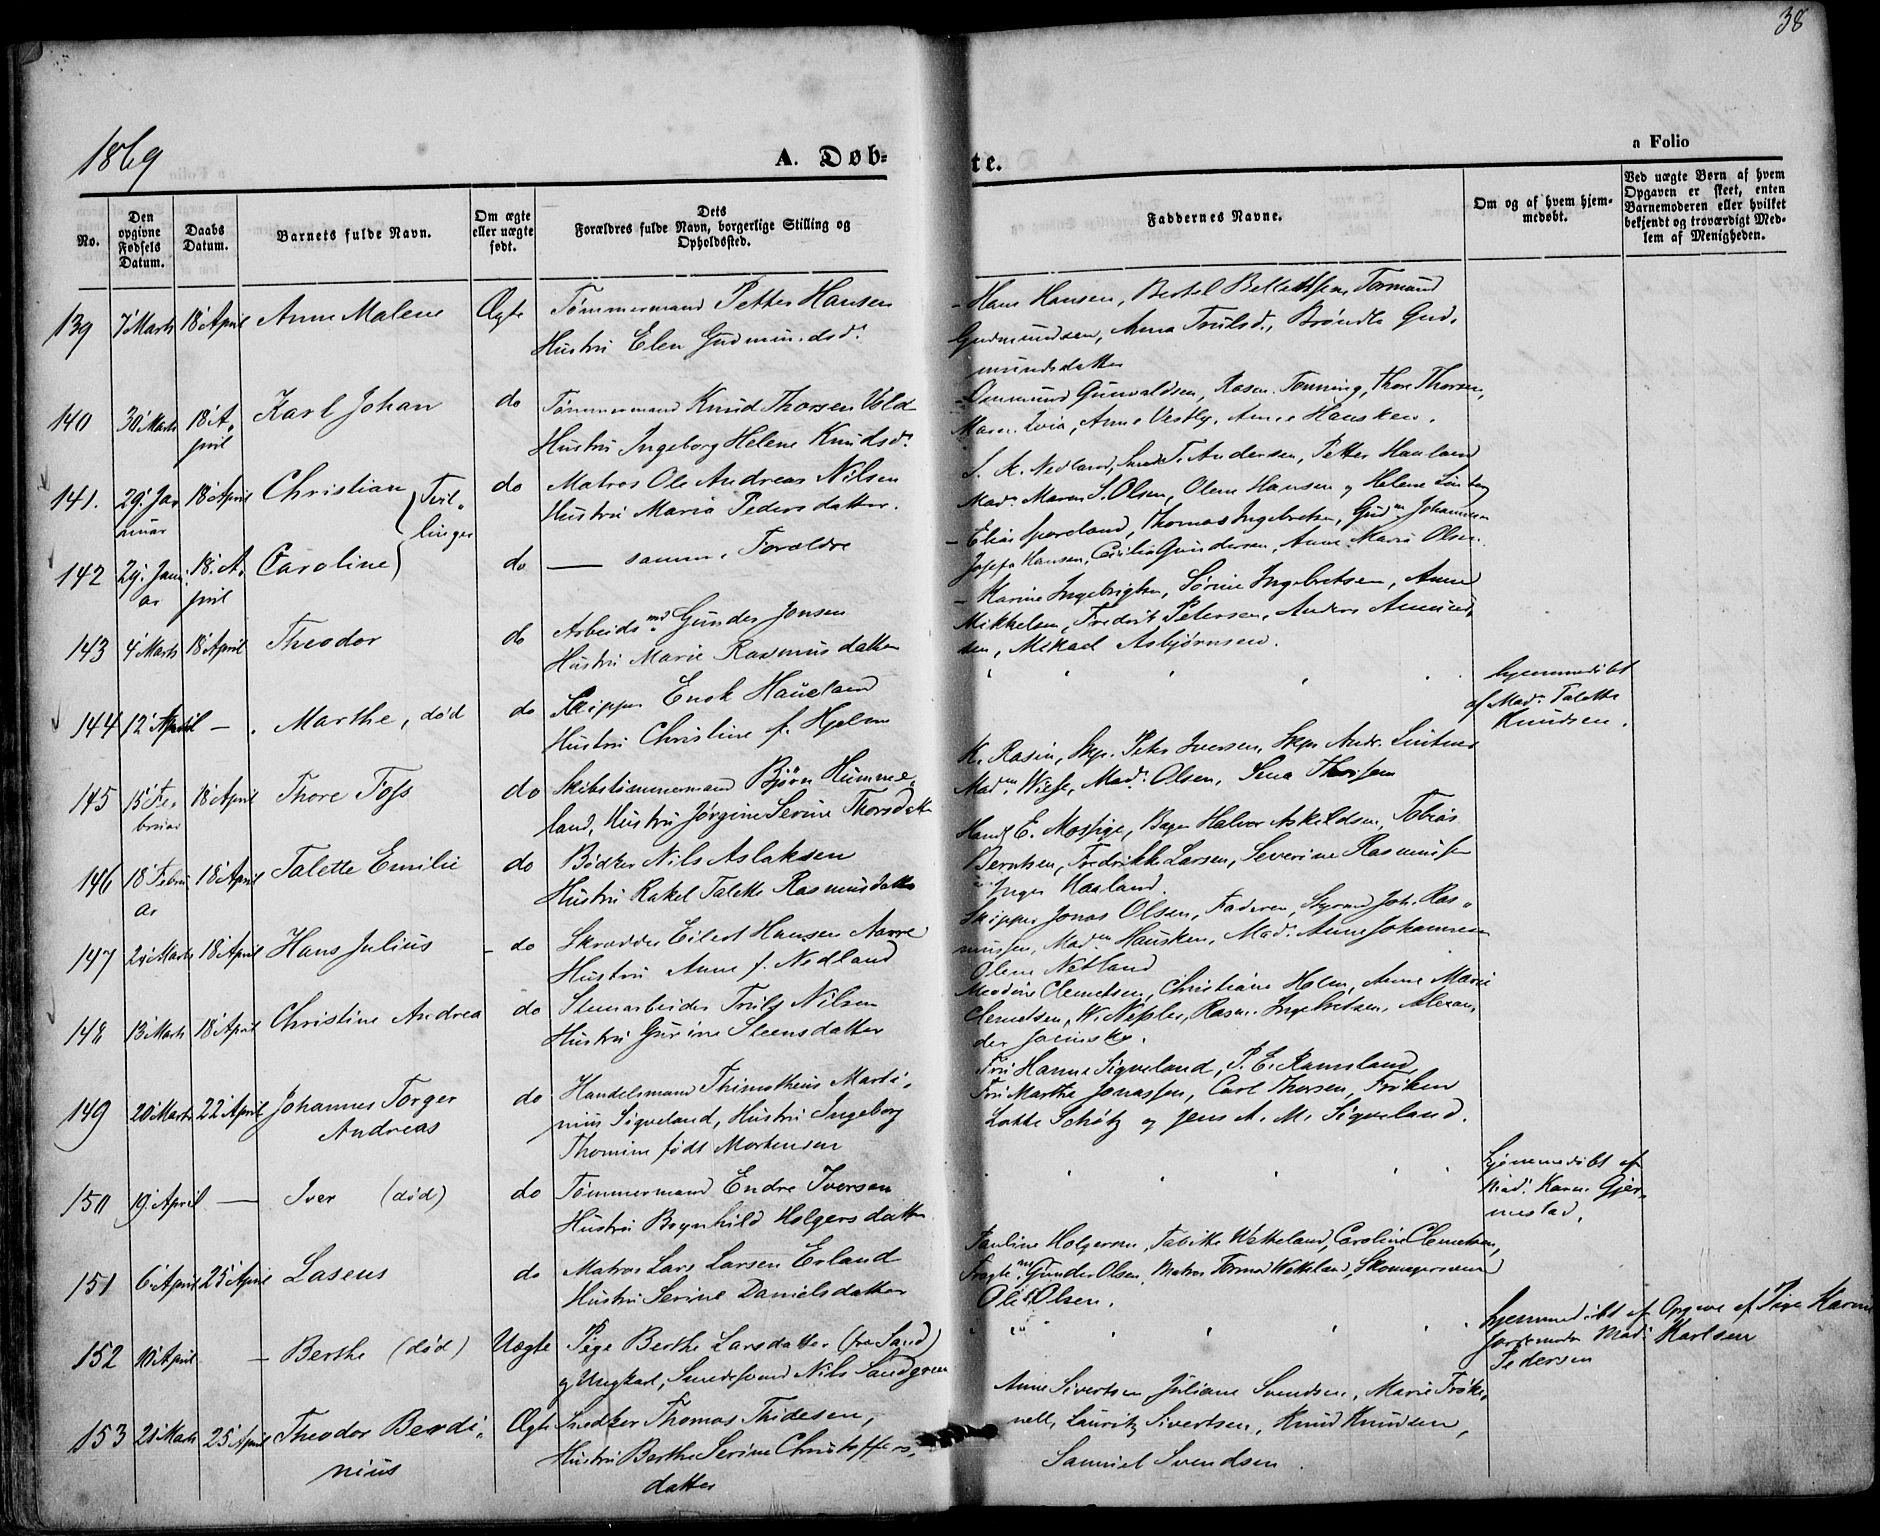 38
1869
A. Døb-
te.
a Folio
No.
Den opgivne Fødsels Datum.
Daabs Datum.
Barnets fulde Navn.
Om ægte eller uægte født.
Dets Forældres fulde Navn, borgerlige Stilling og Opholdssted.
Faddernes Navne.
Om og af hvem hjem-
medøbt.
Ved uægte Børn af hvem Opgaven er skeet, enten Barnemoderen eller hvilket bekjendt og troværdigt Med-
lem af Menigheden.
139 7 Marts 18 April Anne Malene Ægte Tømmermand Petter Hansen
Hustru Elen Gudmundsd.
Hans Hansen, Bertel Tormund
Gudmundsen, Anna Trulsd., Brøndla Gud-
mundsdatter
140 30 Marts 18 A-
pril Karl Johan do Tømmermand Knud Thorsen Vold
Hustru Ingeborg Helene Knudsd.
Ommund Gunvaldsen, Rasm. Tønning, Thore Thorsen,
Maren Anne Vestly, Anne Hausken.
141. 29 Jan-
uar 18 April Christian (Tvil-
linger do Matros Ole Andreas Nilsen
Hustru Maria Pedersdatter.
S. K. Nedland, T. Andersen, Petter Hauland
Mad. Maren S. Olsen, Olene Hansen og Helene
142 29 Janu-
ar 18 A-
pril Caroline do — samme Forældre
Elias Thomas Ingebretsen, Johannesen
Hansen, Cecilia Gundersen, Anne Marie Olsen.
143 4 Marts 18 April Theodor do Arbeidsmd. Gunder Jonsen
Hustru Marie Rasmusdatter
Karine Ingebrigtsen, Sørine Ingebretsen, Anne
Mikkelsen, Fredrik Petersen, Anders Amund-
sen, Mikael Asbjørnsen.
144 12 April — Marthe, død do Skipper Enok Haueland
Hustru Christine f. Hjelm
hjemmedøbt
af Mad. Talette
Knudsen.
145 15 Fe-
bruar 18 April Thore Foss do Skibstømmermand Bjørn Humme-
land, Hustru Jørgine Serine Thorsdatter
K. Rasin, Skpr. Peter Iversen, Skpr. Andr.
Mad. Wiese, Mad. Olsen, Sena
146 18 Febru-
ar 18 April Talette Emilie do Bødker Nils Aslaksen
Hustru Rakel Talette Rasmusdatter
Handl. E. Mossige, Bager Halvor Askildsen, Tobias
Berntsen, Fredrikke Larsen, Severine Rasmussen
Inger Haaland.
147 24 Marts 18 April Hans Julius do Skrædder Eilert Hansen Aarre
Hustru Anne f. Nedland
Skipper Jonas Olsen, Faderen, Styrmd. Joh. Ras-
mussen, Mad. Hausken, Mad. Anne Johannesen
Olene Netland
148 13 Marts 18 April Christine Andrea do Stenarbeider Truls Nilsen
Hustru Gurine Steensdatter
Clemetsen, Christiane Holm, Anne Marie
Clemetsen, W. Nessler, Rasm. Ingebretsen, Alexan-
der
149 20 Marts 22 April Johannes Torger
Andreas do Handelsmand Thimotheus Marti-
nius Sigveland, Hustru Ingeborg
Thomine født Mortensen
Fru Hanne Sigveland, P. E. Ramsland,
Fru Martha Jonassen, Carl Thorsen, Frøken
Lotte Schøtz og Jens A. M. Sigveland.
150 19 April — Iver (død) do Tømmermand Endre Iversen
Hustru Brynhild Holgersdatter
hjemmedøbt af
Mad. Karen Gjer-
mestad.
151 6 April 25 April Lasens do Matros Lars Larsen Erland
Hustru Serine Danielsdatter
Pauline Holgersen, Tabitte Wetteland, Caroline Clemetsen,
Gunder Olsen, Matros Tormod Wetteland, Skomagersvend
Ole Olsen.
152 10 April — Berthe (død) Uægte Pige Berthe Larsdatter (fra Sand)
og Ungkarl, Smedesvend Nils Sandgreen
hjemmedøbt af
Jordemoder Mad.
Pedersen
Opgave af Pige Karine
Karlsen
153 21 Marts 25 April Theodor Berdi-
nius Ægte Snedker Thomas Thidesen,
Hustru Berthe Serine Christoffers-
datter
Anne Sivertsen, Juliane Svendsen, Marie Frøke-
nell, Lauritz Sivertsen, Knud Knudsen,
Samuel Svendsen